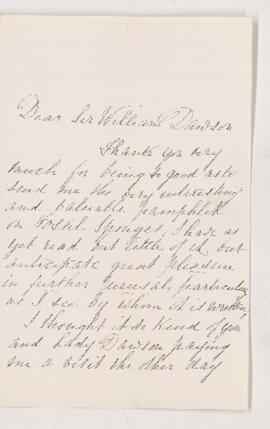 Dear Sir William Dawson
Thank you very
much for being so good as to
send me the very interesting
and valuable pamphlet
on Fossil Sponges, I have as
yet read but little of it but
anticipate great pleasure
in further perusal, particularly
as I see by whom it is written,
I thought it so kind of you
and Lady Dawson paying
me a visit the other day